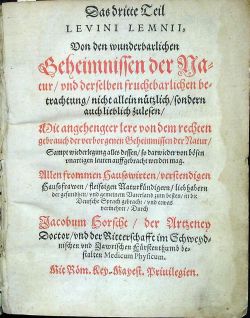 Das dritte Teil
LEVINI LEMNII,
Von den wunderbarlichen
Geheimnissen der Na-
tur/ vnd derselben fruchtbarlichen be-
trachtung/ nicht allein nützlich/ sondern
auch lieblich zulesen/
Mit angehengter lere von dem rechten
gebrauch der verborgenen Geheimnissen der Natur/
Sampt widerlegung alles dessen/ so darwider von bösen
vnartigen leuten auffgebracht werden mag.
Allen frommen Hauswirten/ verstendigen
Hausfrawen/ fleissigen Naturkündigern/ liebhabern
der gesundheit/ vnd gemeinem Vaterland zum besten/ in die
Deutsche Sprach gebracht/ vnd etwas
vermehret/ Durch
Jacobum Horscht/ der Artzeney
Doctor/ vnd der Ritterschafft im Schweyd-
nischen vnd Jawrischen Fürstenthumb be-
stalten Medicum Physicum.
Mit Röm. Key. Mayest. Privilegien.